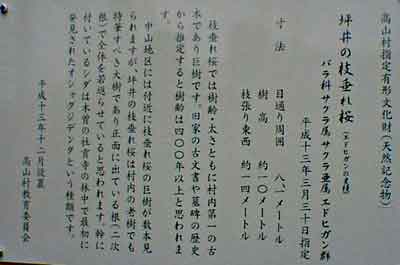 高山村指定有形文化財(天然記念物)
坪井の枝垂れ桜(エドヒガンの変種)
バラ科サクラ属サクラ亜属エドヒガン群
平成十三年三月三十日指定
寸法 目通り周囲 八、一メートル
樹高 約一〇メートル
枝張り東西 約一四メートル
枝垂れ桜では樹齢・太さともに村内第一の古
木であり巨樹です。旧家の古文書や墓碑の歴史
から推定すると樹齢は四〇〇年以上と思われま
す。
中山地区には付近に枝垂れ桜の巨樹が数本見
られますが、坪井の枝垂れ桜は村内の老樹でも
特筆すべき大樹であり正面に出ている根(二次
根)で全体を若返らせていると思われます。幹に
付いているシダは木曽の社育寺の林中で最初に
発見されたオシャクジデンダという種類です。
平成十三年十二月設置
高山村教育委員会